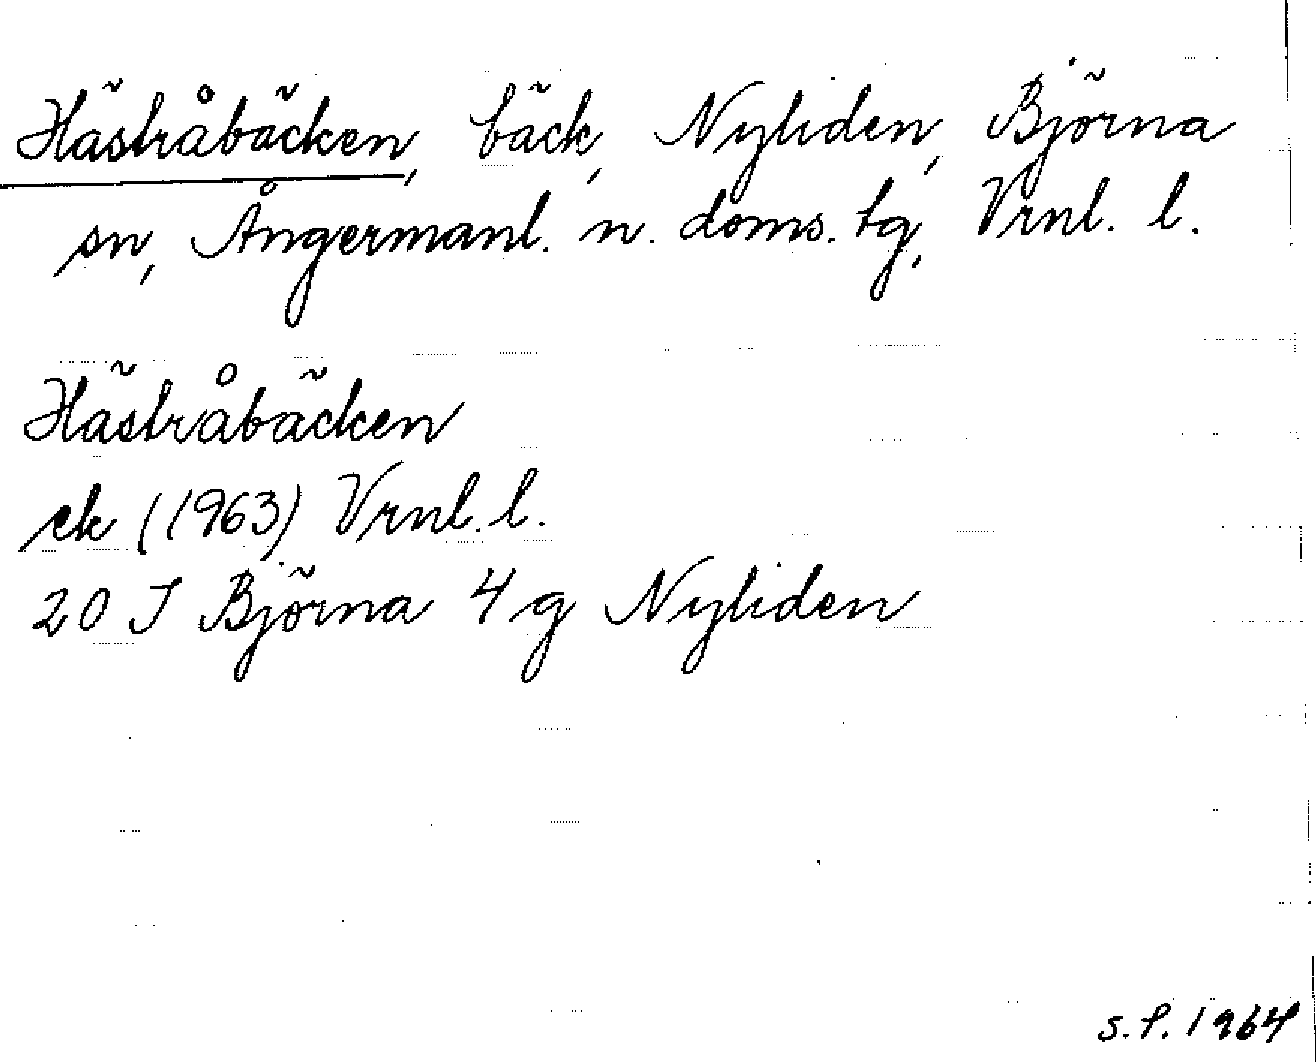 Hästråbäcken, bäck, Nyliden, Björna
sn, Ångermanl. n. doms. tg, Vrnl. l.
Hästråbäcken
ek (1963) Vrnl. l.
20 I Björna 4 g Nyliden
S.P. 1964